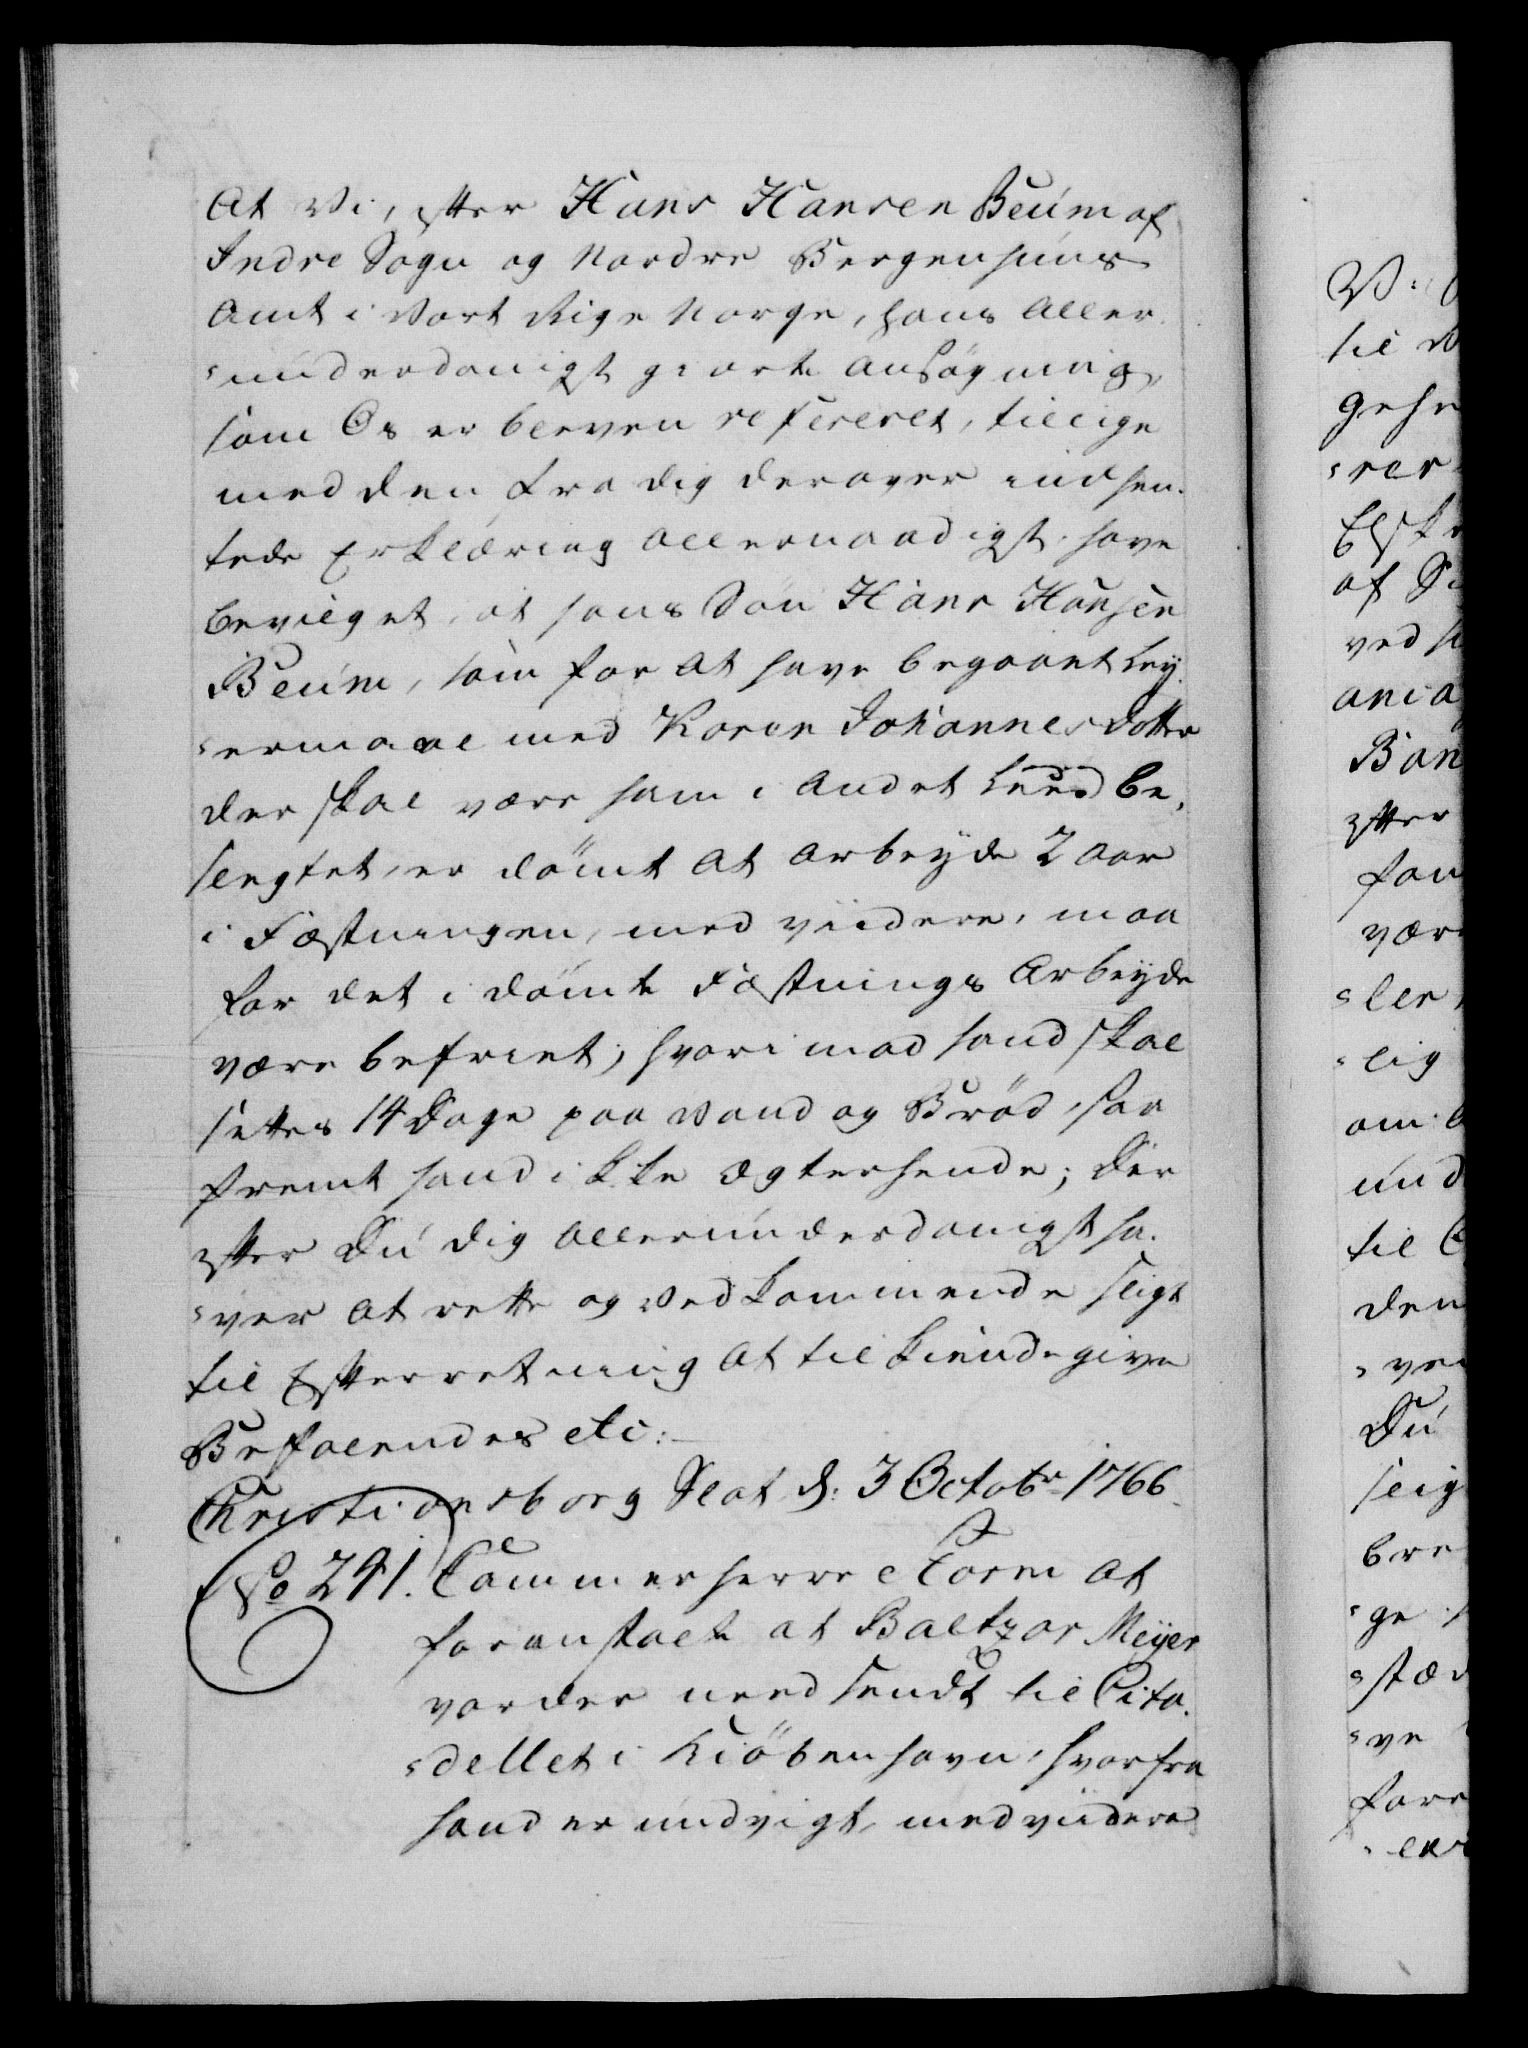 At Vi, efter Hans Hansen Beúm af
Indre Sogn og Nordre Bergenhúus
Amt i Vort Rige Norge, hans aller
=únderdanigst giorte Ansøgning,
som Os er bleven refereret, tillige
med den fra dig derover indhen-
tede Erklæring allernaadigst have
bevilget, at hans Søn Hans Hansen
Beúm, som for at have begaaet Ley-
=ermaal med Karen Johannesdotter
der skal være ham i andet Leed be-
slegtet, er dömt at arbeyde 2 aar
i Fæstningen, med viidere, maa
for det idömte Fæstnings Arbeyde
være befriet; hvorimod hand skal
settes 14 Dage paa Vand og Bröd, saa
fremt hand ikke ægter hende; Der
efter Dú dig allerúnderdanigst ha-
=ver at rette og Vedkommende sligt
til Efterretning at tilkiendegive
Befalendes etc:
Christiansborg Slot d: 3 Octobr 1766
No 241. Cammerherre Storm at
foranstalte at Baltzar Meyer
vorder need sendt til Cita-
=dellet i Kiöbenhavn, hvorfra
hand er undvigt, med viidere
V:
til
=rer
af
ved
ania
Ban
efter
fan
være
=ler
=lig
om
únd
til
den
=ver
Dú
slig
bre
=ge
=stæ
=ve
fore